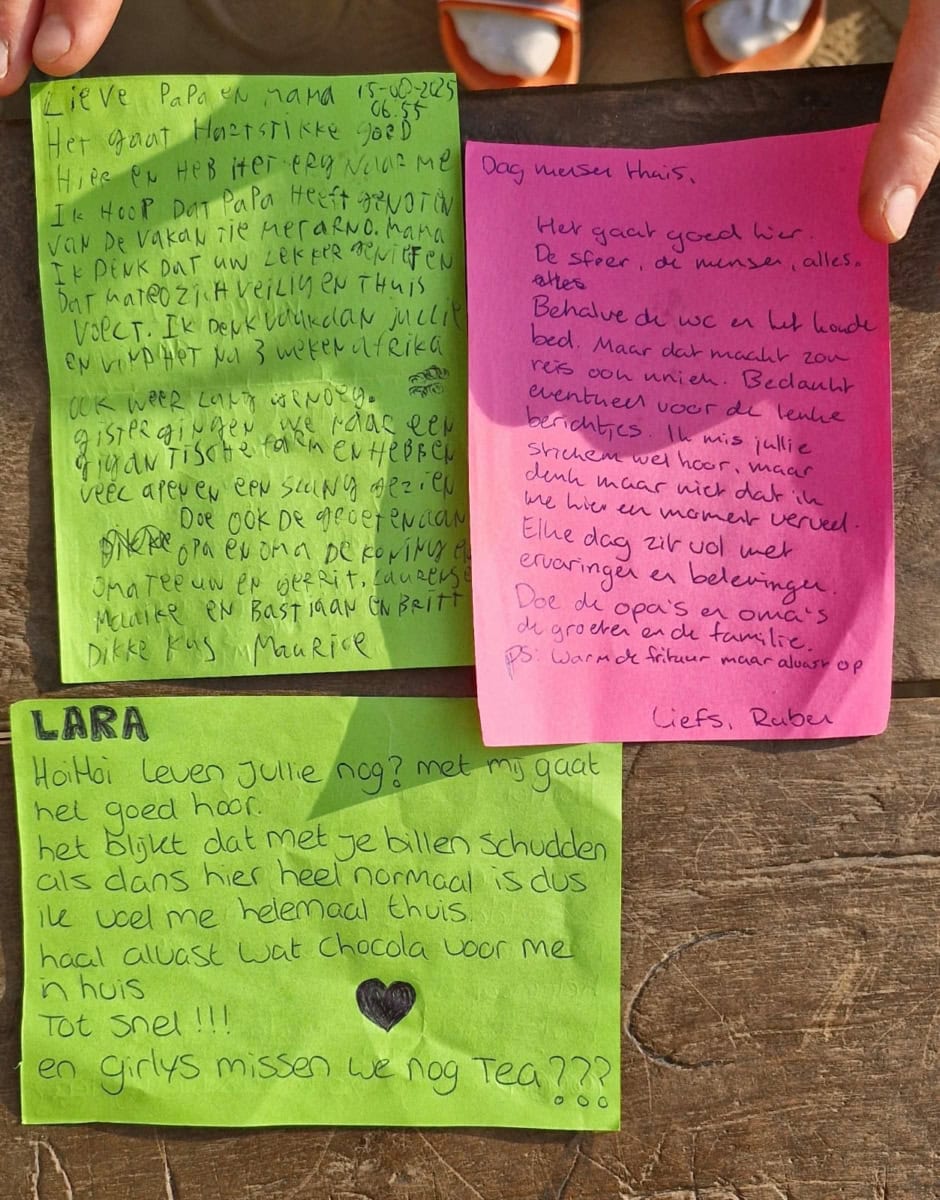 Lieve PaPa en mama 15-08-2025
06.55
Het gaat Hartstikke goeD
Hier en HEB HET ERG NAAR me
Ik HOOP DAT PAPA HEEFT GENOTEN
VAN DE VAKANTIE MET ARNO. MAMA
Ik DENK DAT UW LEKKER GENIETEN
DAT MATEO ZICH VEILIG EN THUIS
VOELT. Ik DENK VAAK aan jullie
en VIND HET NA 3 weken afrika
OOK weer LANG GENOEG.
gister gingen we naar een
gigantische farm EN HEBBEN
veel apen en een slang gezien
Doe OOK DE groeten aan
opa en oma DE KONING en
oma Teeuw en Gerrit, Laurens
Maaike en Bastiaan en Britt
Dikke kus Maurice
Dag mensen thuis,
Het gaat goed hier.
De sfeer, de mensen, alles.
alles
Behalve de wc en het houde
bed. Maar dat maakt zon
reis ook uniek. Bedankt
eventueel voor de leuke
berichtjes. Ik mis jullie
stiekem wel hoor, maar
denk maar niet dat ik
me hier en moment verveel.
Elke dag zit vol met
ervaringen en belevingen.
Doe de opa's en oma's
de groeten en de familie.
ps: warm de frituur maar alvast op
Liefs, Ruben
LARA
HoiHoi leven Jullie nog? met mij gaat
het goed hoor.
het blijkt dat met je billen schudden
als dans hier heel normaal is dus
ik voel me helemaal thuis.
haal alvast wat chocola voor me
in huis
Tot snel!!!
en girlys missen we nog Tea???